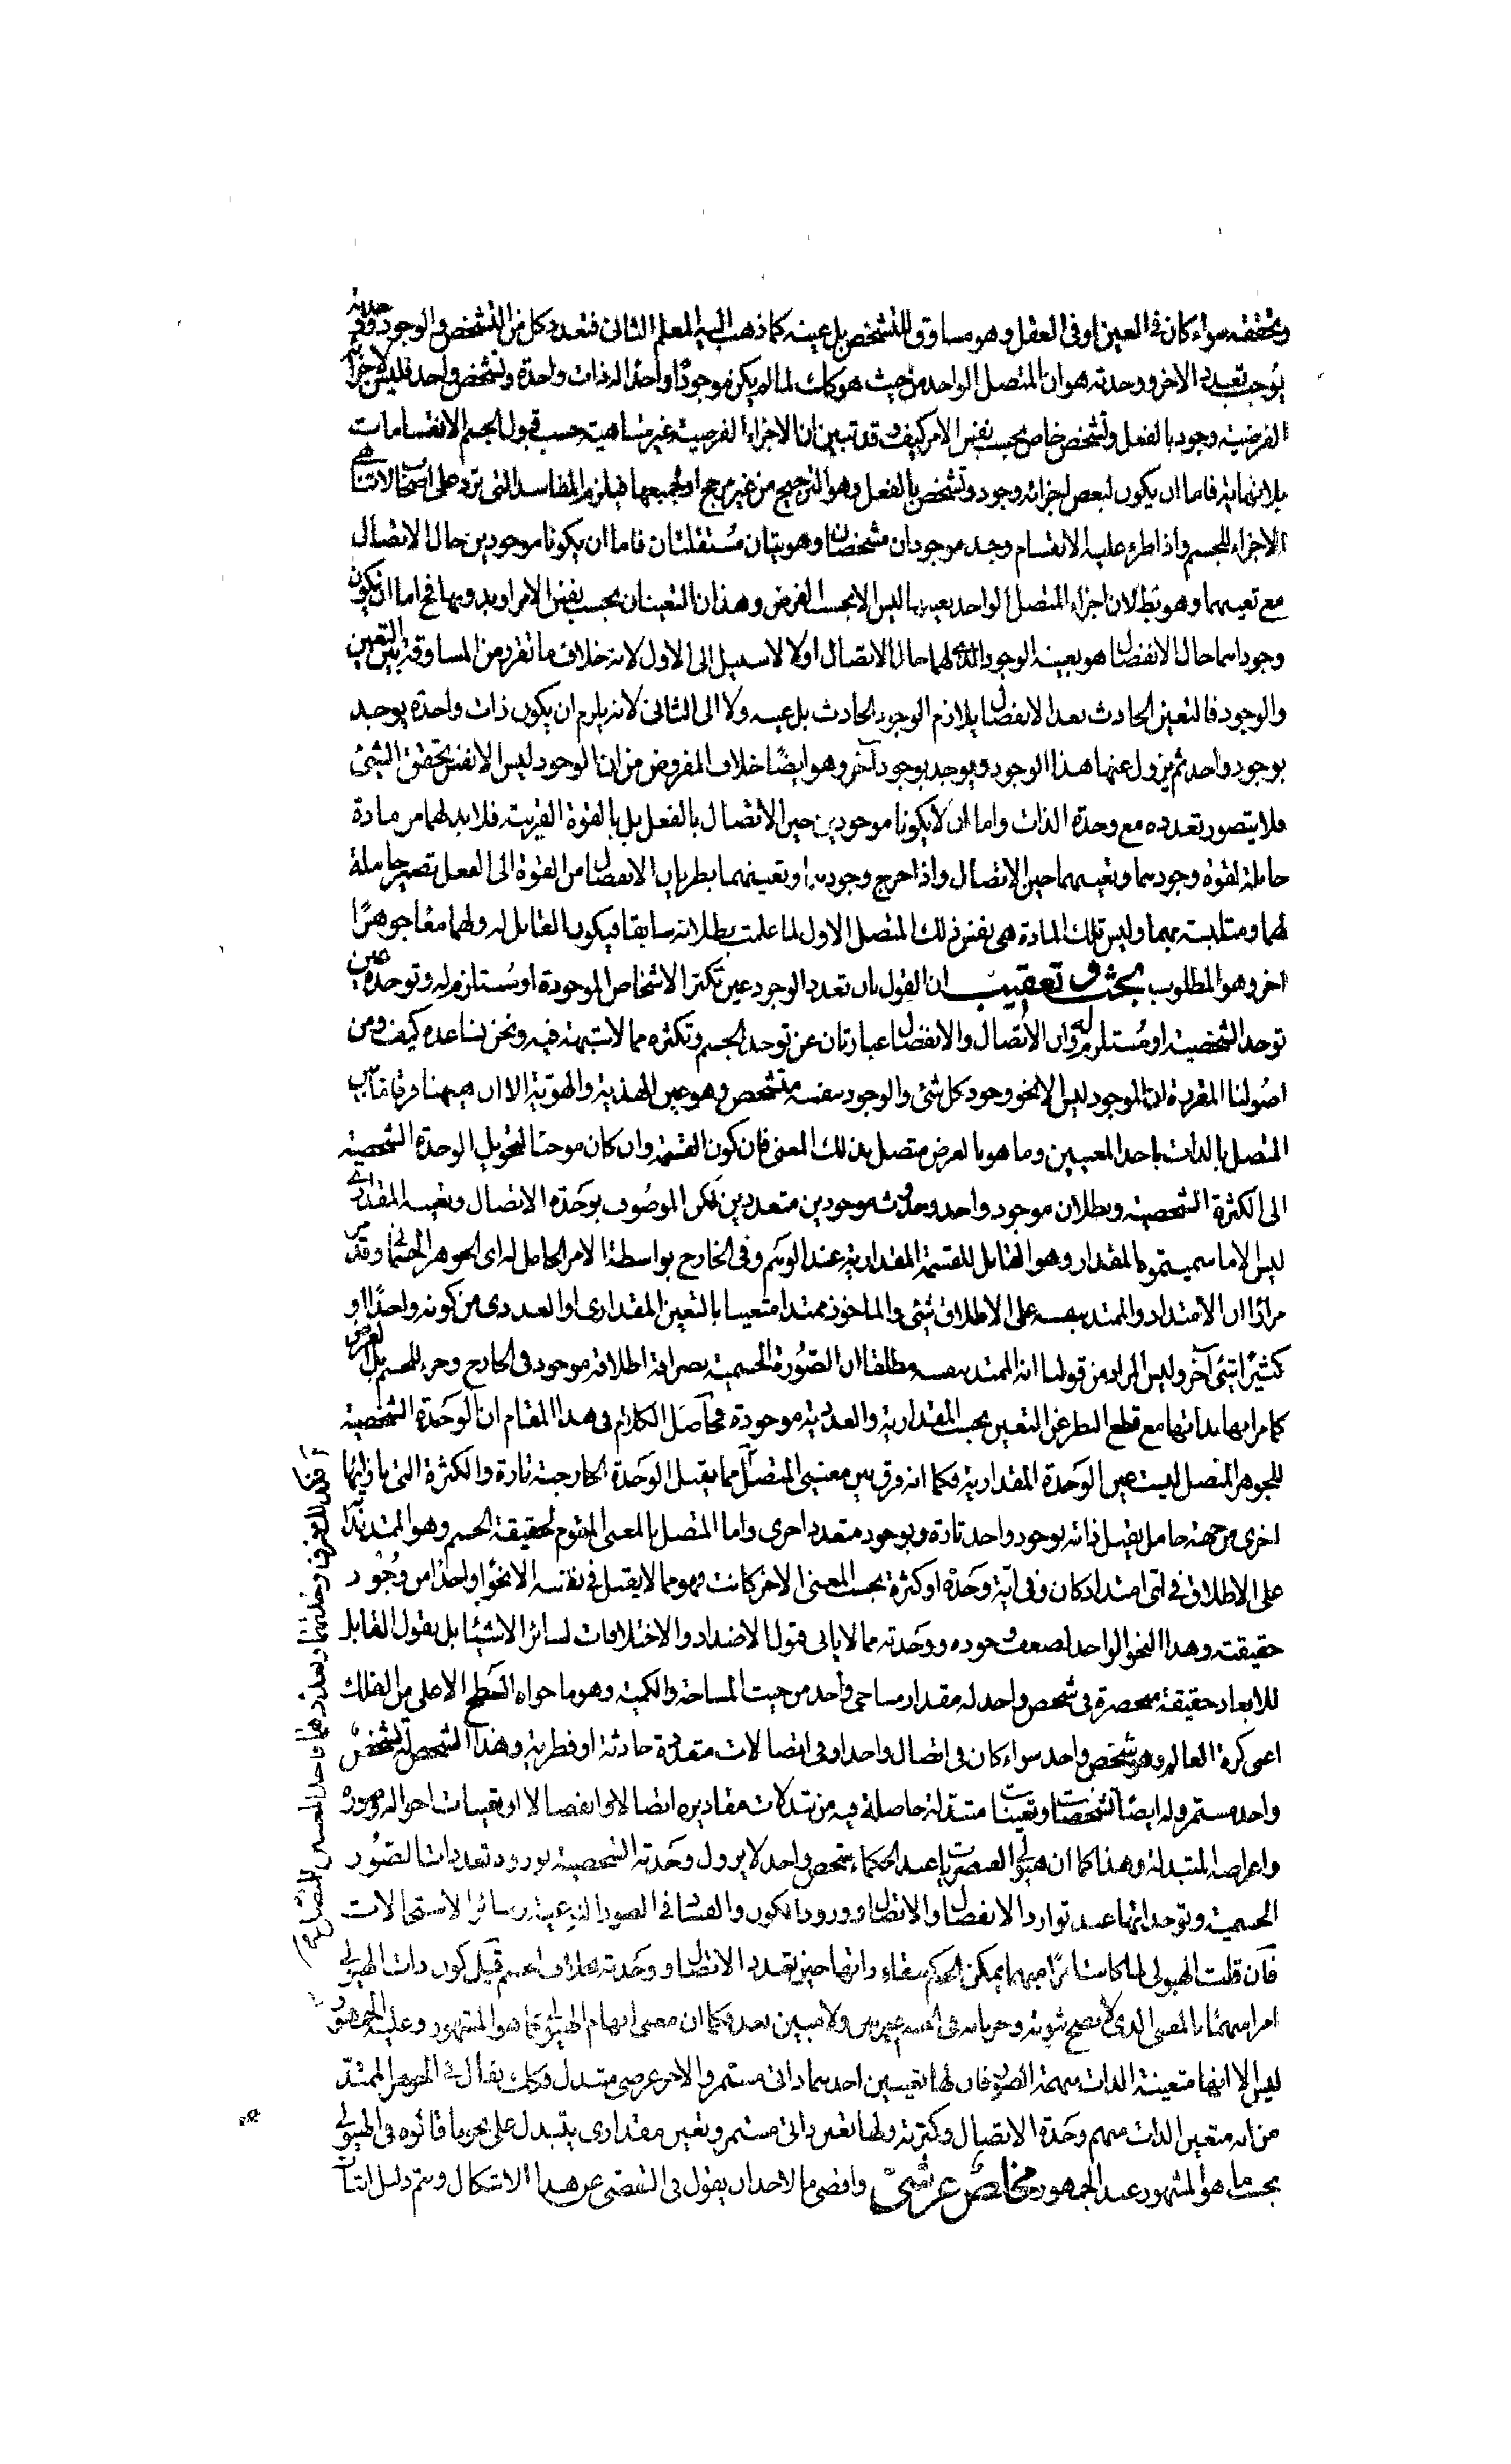 وتحققه سواء كان في العين او في العقل وهو مساوق للتشخص بل عينه كما ذهب اليه المعلم الثاني فتعدد كل من التشخص والوجود وحدته
يوجب تعدد الاخر ووحدته هو ان المتصل الواحد من حيث هو كك لما لم يكن موجودا واحدا له ذات واحدة وتشخص واحد فليس لاجزائه
الفرضية وجود بالفعل وتشخص خاص بحسب نفس الامر كيف وقد تبين ان الاجزاء الفرضية غير متناهية حسب قبول الجسم الانقسامات
بلا نهاية فاما ان يكون لبعض اجزائه وجود وتشخص بالفعل وهو الترجيح من غير مرجح او لجميعها فيلزم المفاسد التي ترد على اصحاب لا تناهي
الاجزاء للجسم واذا طرء عليه الانقسام وجد موجودان مشخصان وهويتان مستقلتان فاما ان يكونا موجودين حال الاتصال
مع تعينهما وهو بط لان اجزاء المتصل الواحد تعينها ليس الا بحسب الفرض وهذان التعينان بحسب نفس الامر او بدونها فح اما ان يكون
وجودهما حال الانفصال هو بعينه الوجود الذي لهما حال الاتصال او لا لا سبيل الى الاول لانه خلاف ما تقرر من المساوقة بين التعين
والوجود فالتعين الحادث بعد الانفصال يلازم الوجود الحادث بل عينه ولا الى الثاني لانه يلزم ان يكون ذات واحدة يوجد
بوجود واحد ثم يزول عنها هذا الوجود ويوجد بوجود آخر وهو ايضا خلاف المفروض من ان الوجود ليس الا نفس تحقق الشيئ
فلا يتصور تعدده مع وحدة الذات واما ان لا يكونا موجودين حين الاتصال بالفعل بل بالقوة القريبة فلا بد لهما من مادة
حاملة لقوة وجودهما وتعينهما حين الاتصال واذا خرج وجودهما وتعينهما بطريان الانفصال من القوة الى الفعل تصير حاملة
لهما ومتلبسة بهما وليس تلك المادة هي نفس ذلك المتصل الاول لما علمت بطلانه سابقا فيكون القابل له ولهما معا جوهرا
اخر وهو المطلوب بحث وتعقيب ان القول بان تعدد الوجود عين تكثر الاشخاص الموجودة او مستلزم له وتوحده عين
توحد الشخصية او مستلزم له وان الاتصال والانفصال عبارتان عن توحد الجسم وتكثره مما لا شبهة فيه ونحن نساعده كيف ومن
اصولنا المقررة ان الموجود ليس الا نحو وجود كل شئ والوجود بنفسه متشخص وهو عين الهذية والهوية الا ان ههنا فرقا بين
المتصل بالذات باحد المعنيين وما هو بالعرض متصل بذلك المعنى فان كون القسمة وان كان موجبا لتحويل الوحدة الشخصية
الى الكثرة الشخصية وبطلان موجود واحد وحدوث موجودين متعددين لكن الموصوف بوحدة الاتصال وتعينه المقداري
ليس الا ما سميتموه بالمقدار وهو القابل للقسمة المقدارية عند الوهم وفي الخارج بواسطة الامر الحامل له اي الجوهر الجسماني وقد مر
مرارا ان الامتداد والممتد بنفسه على الاطلاق شئ والماخوذ ممتدا متعينا بالتعين المقداري او العددي من كونه واحدا او
كثيرا شئ آخر وليس المراد من قولنا انه الممتد بنفسه مطلقا ان الصورة الجسمية بصرافة اطلاقه موجود في الخارج وجزء للجسم بل الغرض
كما مر انها بذاتها مع قطع النظر عن التعين بحسب المقدارية والعددية موجودة فحاصل الكلام في هذا المقام ان الوحدة الشخصية
للجوهر المتصل ليست عين الوحدة المقدارية فكما انه فرق بين معنيي المتصل مما يقبل الوحدة الخارجية تارة والكثرة التي بازائها
اخرى من جهة حامل يقبل ذاته بوجود واحد تارة وبوجود متعدد اخرى واما المتصل بالمعنى المقوم لحقيقة الجسم وهو الممتد بذاته
على الاطلاق في اي امتداد كان وفي اية وحدة او كثرة بحسب المعنى الاخر كانت فهو مما لا يقبل في نفسه الا نحوا واحدا من وجود
حقيقته وهذا النحو الواحد لضعف وجوده ووحدته مما لا يابى قبول الاضداد والاختلافات لسائر الاشياء بل نقول القابل
للابعاد حقيقة منحصرة في شخص واحد له مقدار مساحي واحد من حيث المساحة والكمية وهو ما حواه السطح الاعلى من الفلك
اعني كرة العالم وهو شخص واحد سواء كان في اتصال واحد او في اتصالات متعددة حادثة او فطرية وهذا الشخص له تشخص
واحد مستمر وله ايضا تشخصات وتعينات متبدلة حاصلة فيه من تبدلات مقاديره اتصالا وانفصالا او تعينات احواله وصوره
واعراضه المتبدلة وهذا كما ان هيولى العنصريات عند الحكماء شخص واحد لا يزول وحدته الشخصية بورود تعددات الصور
الجسمية وتوحداتها عند توارد الانفصال والاتصال وورود الكون والفساد في الصور النوعية وسائر الاستحالات
فان قلت الهيولى لما كانت امرا مبهما يمكن الحكم ببقاء ذاتها حين تعدد الاتصال ووحدته بخلاف الجسم قيل كون ذات الهيولى
امرا مبهما بالمعنى الذي لا يصح ثبوته وجريانه في الجسم غير بين ولا مبين بعد فكما ان معنى ابهام الهيولى كما هو المشهور وعليه الجمهور
ليس الا انها متعينة الذات مبهمة الصور فان لها تعينين احدهما ذاتي مستمر والاخر عرضي متبدل فكك يقال في الجوهر الممتد
من انه متعين الذات مبهم وحدة الاتصال وكثرته ولها تعين ذاتي مستمر وتعين مقداري يتبدل على نحو ما قالوه في الهيولى
بحسب ما هو المشهور عند الجمهور مخلص عرشي واقصى ما لاحد ان يقول في التفصي عن هذا الاشكال ويتم دليل اثبات